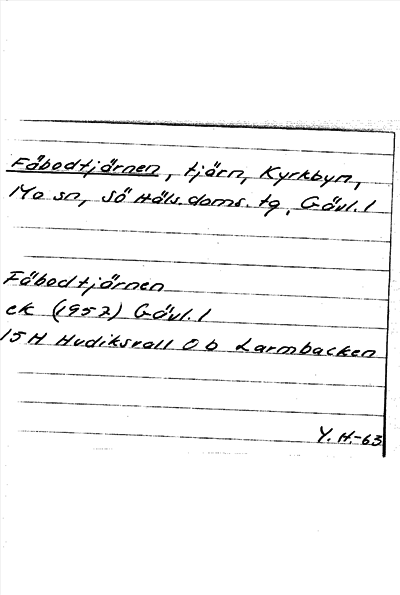 Fäbodtjärnen, tjärn, Kyrkbyn,
Mo sn, Sö Häls. doms. tg, Gävl. l
Fäbodtjärnen
ek (1952) Gävl. l
15 H Hudiksvall 0 b Larmbacken
Y. H.-63